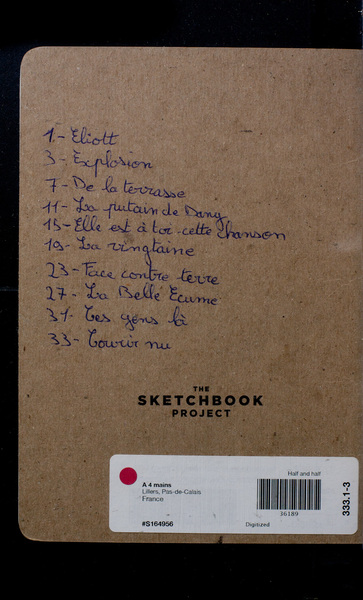 1- Eliott
3- Explosion
7- De la terrasse
11- La putain de Dany
15- Elle est à toi cette chanson
19- La vingtaine
23- Face contre terre
27- La Belle Ecume
31- Ces gens là
33- Courir nu
THE
SKETCHBOOK
PROJECT
Half and half
A 4 mains
Lillers, Pas-de-Calais
France
36189
#S164956
Digitized
333.1-3